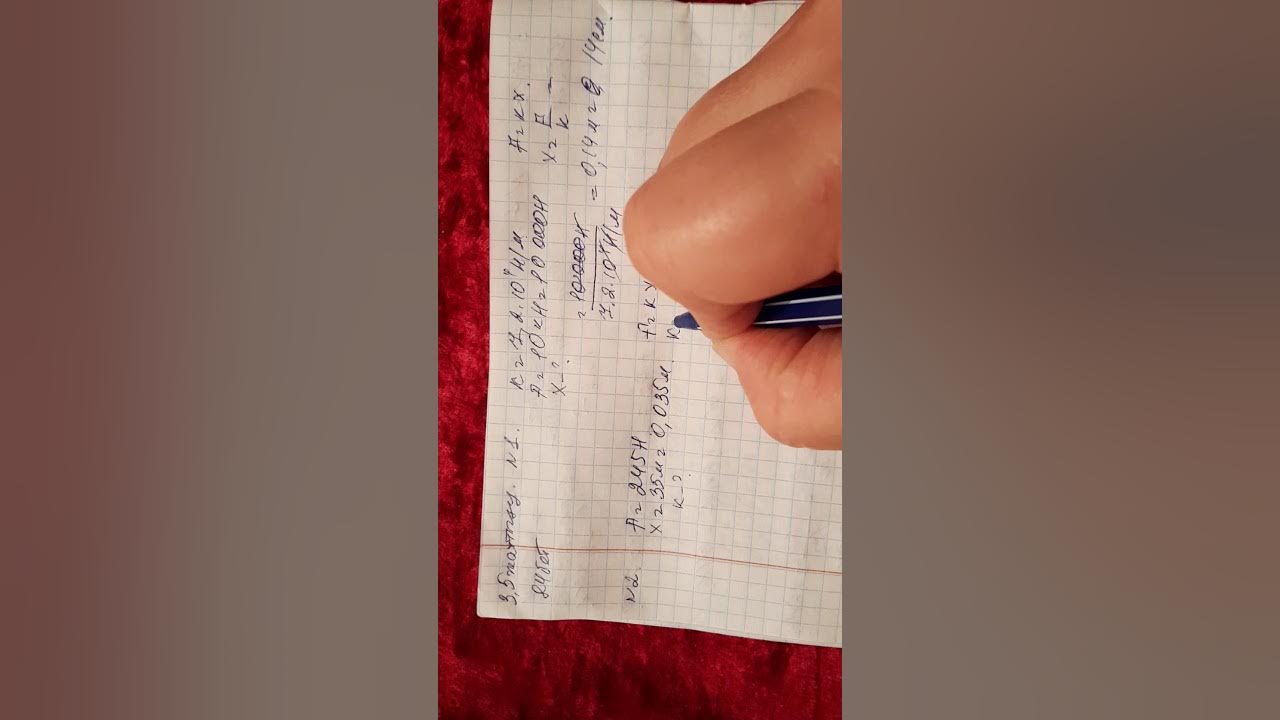 3,5 жаттығу. N1.
84бет
k = 7,2·10⁴ Н/м
F = 10 кН = 10 000Н
x-?
F = kx.
x = F/k =
= 10000Н / 7,2·10⁴ Н/м = 0,14м = 14см.
N2.
F = 245Н
x = 35м = 0,035м.
k-?
F = kx
k